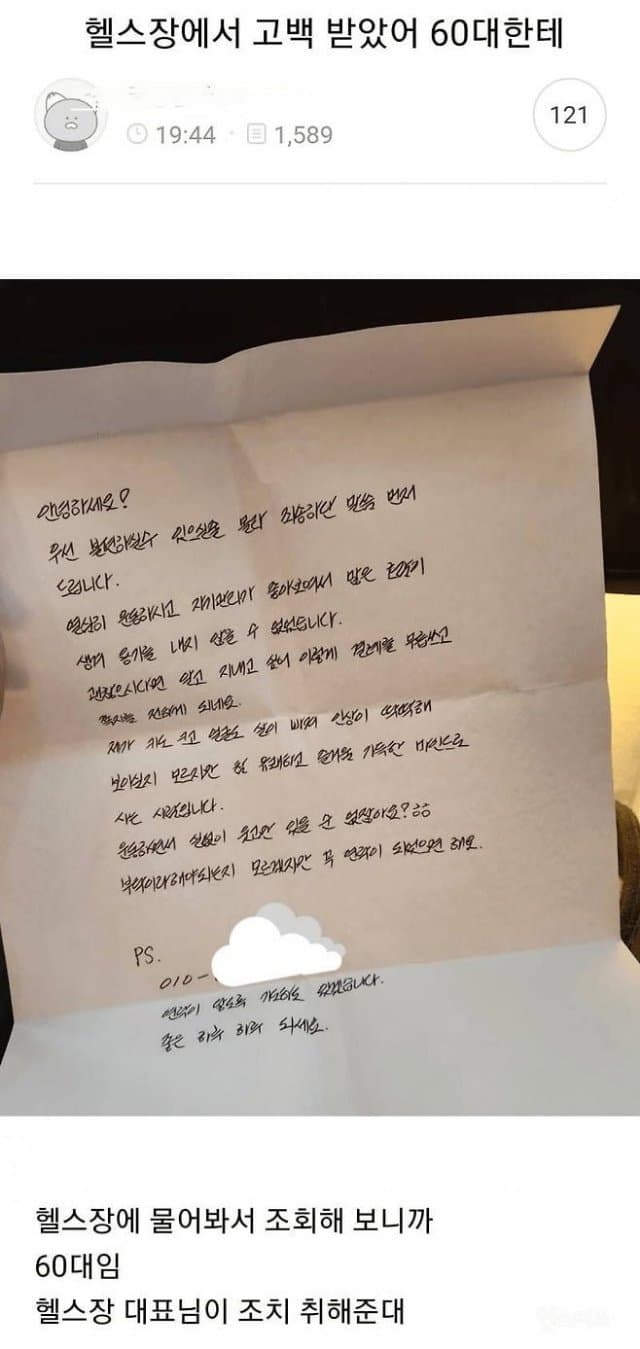 헬스장에서 고백 받았어 60대한테
19:44 · 1,589
121
안녕하세요?
우선 불편하실수 있으실줄 몰라 죄송하단 말씀 먼저
드립니다.
열심히 운동하시고 자기관리가 좋아보여서 많은
생겨 용기를 내지 않을 수 없었습니다.
괜찮으시다면 알고 지내고 싶어 이렇게 결례를 무릅쓰고
전하게 되네요.
제가 키도 크고 얼굴도 살이 빠져 인상이 딱딱해
보이실지 모르지만 유쾌하고 즐거움 가득한 마인드로
사는 사람입니다.
운동하면서 실없이 웃고만 있을 순 없잖아요?
부탁이라해야되는지 모르겠지만 꼭 연락이 되었으면 해요.
PS.
010-
연락이 않되도 기도하고 있겠습니다.
좋은 하루 하루 되세요.
헬스장에 물어봐서 조회해 보니까
60대임
헬스장 대표님이 조치 취해준대